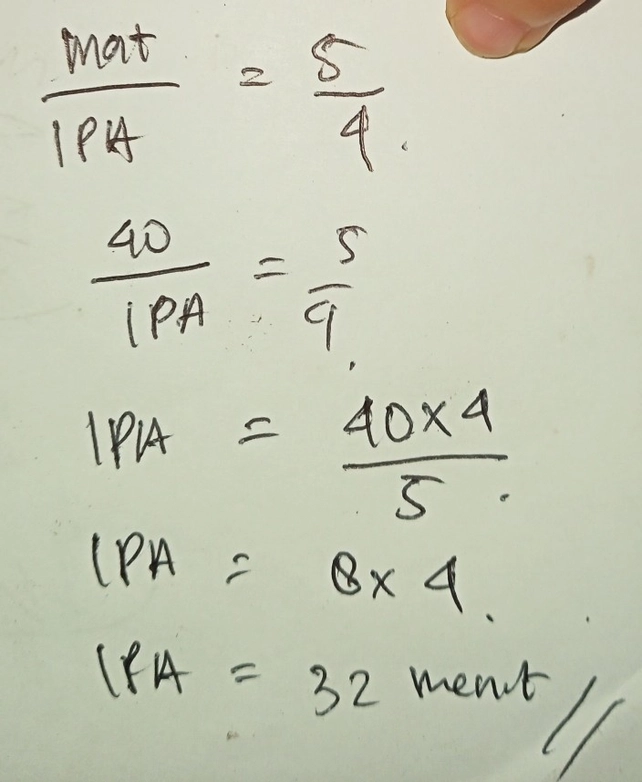 Mat/IPA = 5/4.
40/IPA = 5/4.
IPA = 40x4/5.
IPA = 8x4.
IPA = 32 menit //